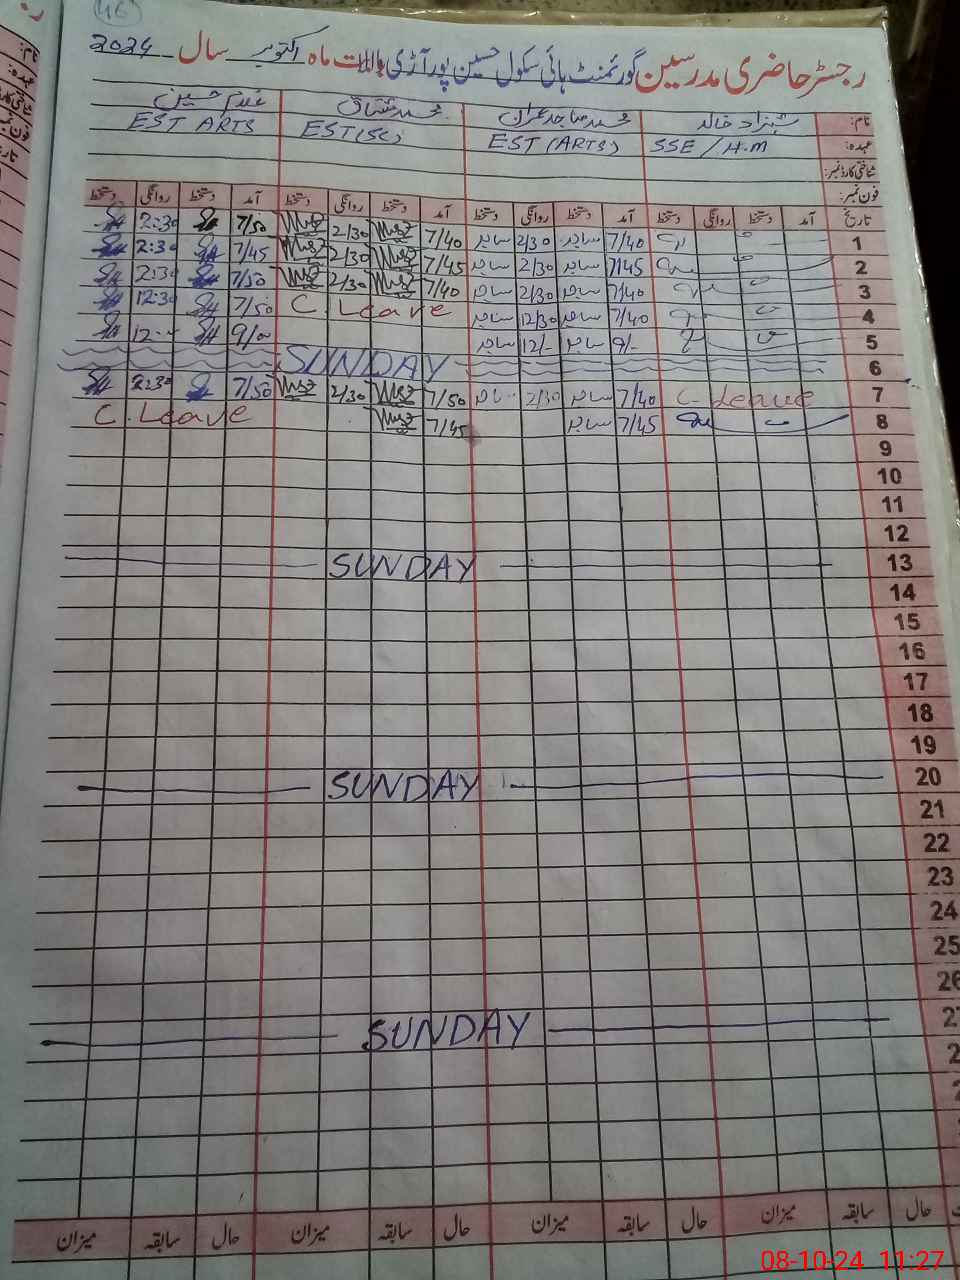 46
رجسٹر حاضری مدرسین گورنمنٹ ہائی سکول حسین پور آڑی بابت ماہ اکتوبر سال 2024
نام: شہزاد خالد محمد ساجد عمران محمد مشتاق غلام حسین
عہدہ: SSE / H.M EST (ARTS) EST (SC) EST ARTS
شناختی کارڈ نمبر:
فون نمبر:
تاریخ آمد دستخط روانگی دستخط آمد دستخط روانگی دستخط آمد دستخط روانگی دستخط آمد دستخط روانگی دستخط
1 7/40 ساجد 2/30 ساجد 7/40 2/30 7/50 2:30
2 7/45 ساجد 2/30 ساجد 7/45 2/30 7/45 2:30
3 7/40 ساجد 2/30 ساجد 7/40 2/30 7/50 2:30
4 7/40 ساجد 12/30 ساجد C. Leave 7/50 12:30
5 9/- ساجد 12/- ساجد 9/00
6 SUNDAY
7 C. Leave 7/40 ساجد 2/30 7/50 2/30 7/50 2:30
8 7/45 ساجد 7/45 C. Leave
9
10
11
12
13 SUNDAY
14
15
16
17
18
19
20 SUNDAY
21
22
23
24
25
26
27 SUNDAY
حال سابقہ میزان حال سابقہ میزان حال سابقہ میزان حال سابقہ میزان
08-10-24 11:27